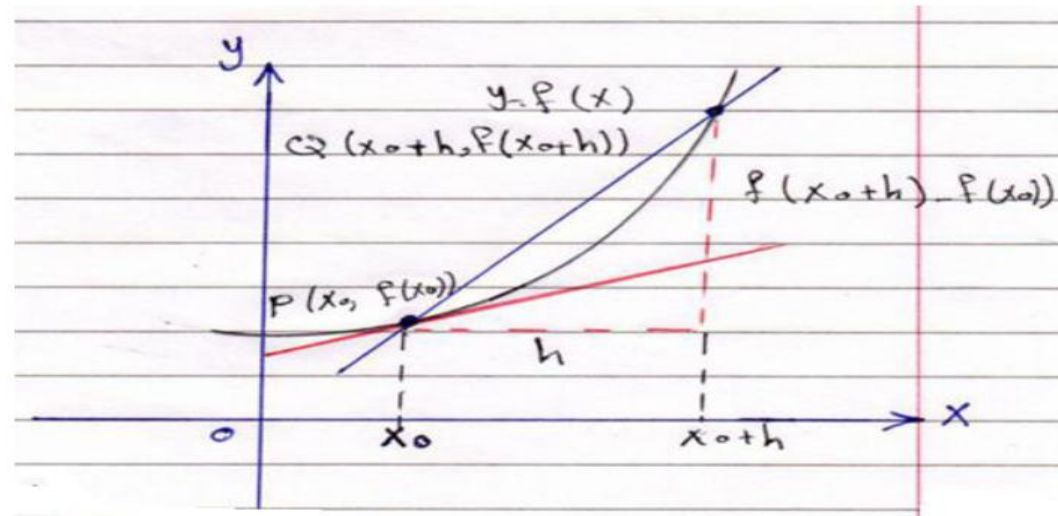 y
y=f(x)
Q(x₀+h,f(x₀+h))
f(x₀+h)-f(x₀))
P(x₀, f(x₀))
h
0
x₀
x₀+h
x